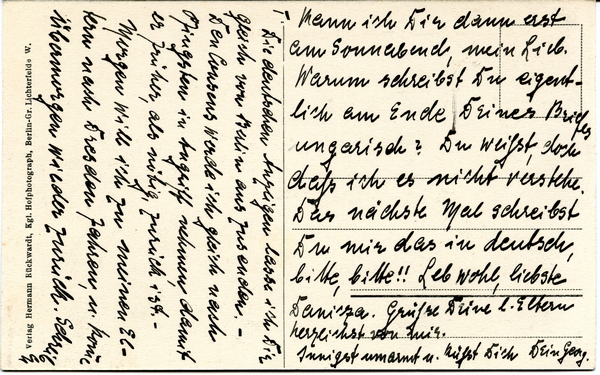 Die deutschen Anzüge lasse ich Dir
gleich von Berlin aus zusenden. –
Den Loosens werde ich gleich nach
Pfingsten in Angriff nehmen, damit
er früher, als nötig, zurück ist. –
Morgen will ich zu meinen El-
tern nach Dresden fahren, u. komme
übermorgen wieder zurück.
kann ich Dir dann erst
am Sonnabend, mein Lieb.
Warum schreibst Du eigent-
lich am Ende Deines Briefes
ungarisch? Du weißt, doch
daß ich es nicht verstehe.
Das nächste Mal schreibst
Du mir das in deutsch,
bitte, bitte!! Leb wohl, liebste
Grüße Deine l. Eltern
herzlichst von mir.
Innigst umarmt u. küßt Dich Dein Georg.
Verlag Hermann Rückwardt, Kgl. Hofphotograph, Berlin-Gr. Lichterfelde W.